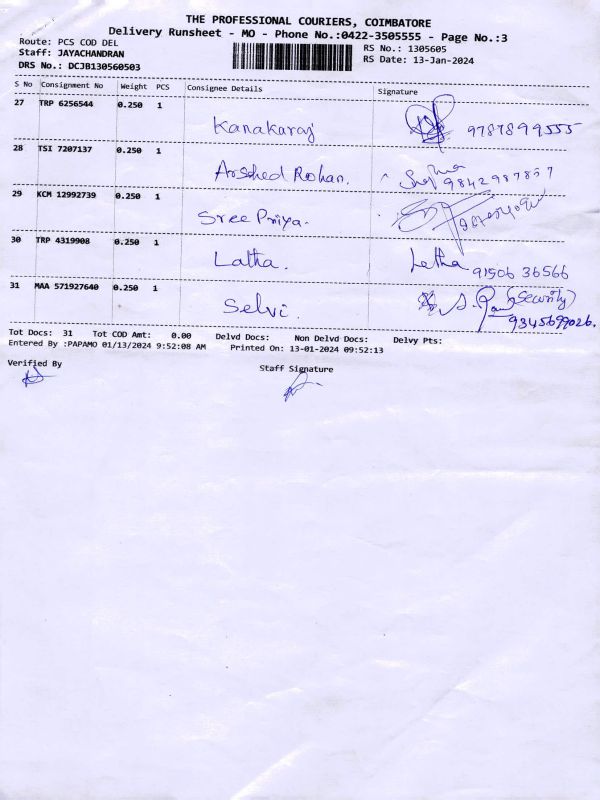 THE PROFESSIONAL COURIERS, COIMBATORE
Delivery Runsheet - MO - Phone No.:0422-3505555 - Page No.:3
Route: PCS COD DEL
RS No.: 1305605
Staff: JAYACHANDRAN
RS Date: 13-Jan-2024
DRS No.: DCJB130560503
S No Consignment No Weight PCS Consignee Details Signature
27 TRP 6256544 0.250 1
Kanakaraj 9787899555
28 TSI 7207137 0.250 1
Arshed Rohan. 9842987857
29 KCM 12992739 0.250 1
Sree Priya.
30 TRP 4319908 0.250 1
Latha. Letha 91506 36566
31 MAA 571927640 0.250 1
Selvi (Security)
9345699026.
Tot Docs: 31 Tot COD Amt: 0.00 Delvd Docs: Non Delvd Docs: Delvy Pts:
Entered By :PAPAMO 01/13/2024 9:52:08 AM Printed On: 13-01-2024 09:52:13
Verified By
Staff Signature